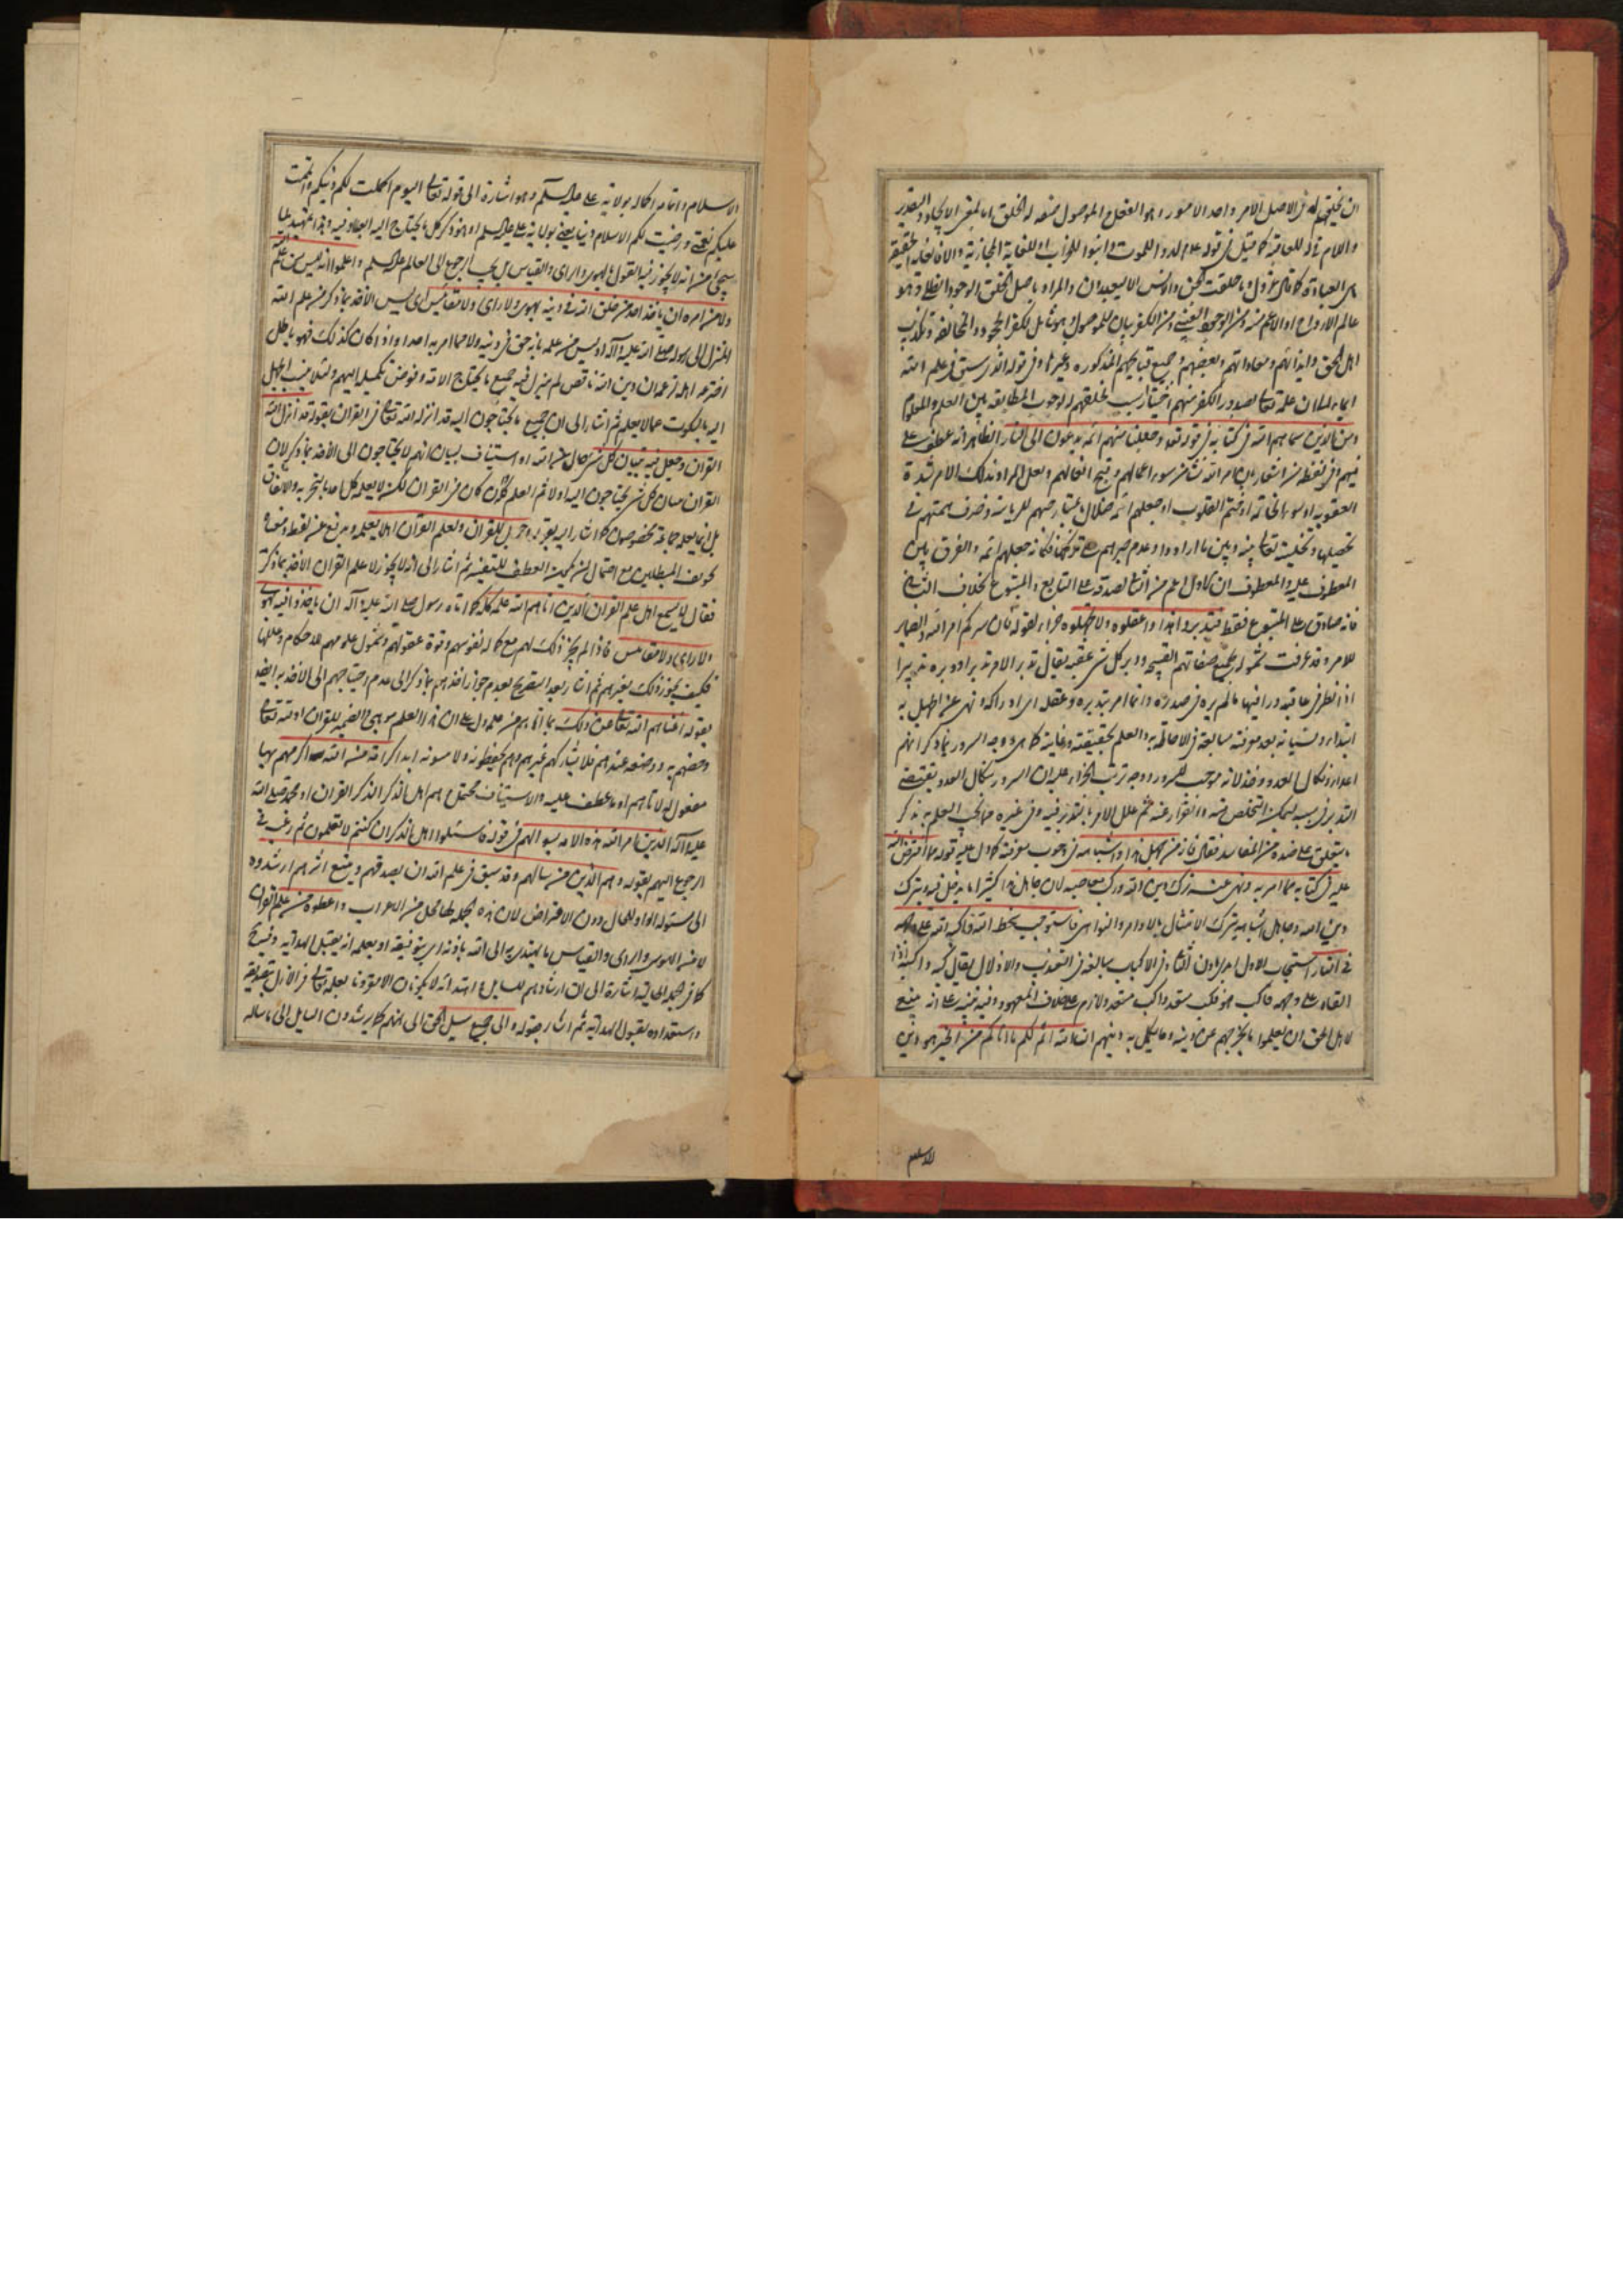 ان يخلقهم له في الاصل الامر واحد الامور او هو الفعل والموصول صفة له الخلق اما بمعنى الايجاد او التقدير
واللام في له للعاقبة كما قيل في قوله لدوا للموت وابنوا للخراب او للغاية المجازية والا فالغاية الحقيقية
هي العبادة كما قال عز وجل وما خلقت الجن والانس الا ليعبدون والمراد باصل الخلق الوجود الظلي وهو
عالم الارواح او الاعم منه ومن الوجود العيني ومن الكفر بيان للموصول وهو شامل لكفر الجحود والمخالفة وتكذيب
اهل الحق وايذائهم ومعاداتهم وبغضهم وجميع قبايحهم المذكورة وغيرها وفي قوله الذي سبق في علم الله
ايماء الى ان علمه تعالى بصدور الكفر منهم اختيارا سبب لخلقهم له لوجوب المطابقة بين العلم والمعلوم
ومن الذين سماهم الله في كتابه في قوله تعالى وجعلنا منهم ائمة يدعون الى النار الظاهر انه عطف على
العقوبة او سوء الخاتمة او ختم القلوب او جعلهم ائمة ضلال باعتبار حبهم للرياسة وصرف همتهم في
تحصيلها وتخليته تعالى بينهم وبين ما ارادوا وعدم جبرهم على تركها فكانه جعلهم ائمة والفرق بين
المعطوف عليه والمعطوف ان الاول اعم من الثاني لصدقه على التابع والمتبوع بخلاف الثاني
فانه صادق على المتبوع فقط فتدبروا هذا واعقلوه ولا تجهلوه جزاء لقوله فان سركم امر الله والضمير
للامر وقد عرفت شموله لجميع صفاتهم القبيحة ودبر كل شيء عقبه يقال تدبر الامر تدبرا ودبره تدبيرا
اذا نظر في عاقبته وراى فيها ما لم يره في صدره وانما امر بتدبره وعقله اي ادراكه ونهى عن الجهل به
ابتداء ونسيانه بعد معرفته مبالغة في الاحاطة به والعلم بحقيقته وغايته كما هي ووجه السرور بما ذكر انهم
اعداء ونكال العدو وخذلانه موجب للسرور ووجه ترتب الجزاء عليه ان السرور بنكال العدو يقتضي
التدبر في سببه ليمكن التخلص منه والفرار عنه ثم علل الامر بالتدبر فيه وفي غيره مما يجب العلم به بذكر
ما يتعلق على ضده من المفاسد فقال فانه من يجهل هذا واشباهه في وجوب معرفته كما دل عليه قوله مما افترض الله
عليه في كتابه مما امر به ونهى عنه ترك دين الله وركب معاصيه لان جاهل هذا كثيرا ما يدخل فيه ويترك
دين الله وجاهل اشباهه يترك الامتثال بالاوامر والنواهي فاستوجب سخط الله فاكبه الله على وجهه
في النار
القاه على وجهه فاكب هو فكب متعد واكب لازم على خلاف المعهود وفيه تنبيه على انه ينبغي
لاهل الحق ان يعلموا ما يخرجهم عن دينه وما يكمل به دينهم ان الله اتم لكم ما اتاكم من الخير هو دين
الاسلام
الاسلام واتمامه اكماله بولاية علي عليه السلم وهو اشارة الى قوله تعالى اليوم اكملت لكم دينكم واتممت
عليكم نعمتي ورضيت لكم الاسلام دينا يعني بولاية علي عليه السلم او هو ذكر كل ما يحتاج اليه العباد فيه وهذا تمهيد لما
سيجيء من انه لا يجوز فيه القول بالهوى والراي والقياس بل يجب الرجوع الى العالم عليه السلم واعلموا انه ليس من علم الله
ولا من امره ان ياخذ احد من خلق الله في دينه بهوى ولا راي ولا مقائيس اي ليس الاخذ بما ذكر من علم الله
المنزل الى رسوله صلى الله عليه واله او ليس من علمه بانه حق في دينه ولا مما امر به احدا واذا كان كذلك فهو باطل
افترعه اهله لزعمهم ان دين الله ناقص لم ينزل فيه جميع ما يحتاج الامة وفوض تكميله اليهم ولئلا ينسب الجهل
اليه بالسكوت عما لا يعلم ثم اشار الى ان جميع ما يحتاجون اليه قد انزله الله تعالى في القران بقوله قد انزل الله
القران وجعل فيه تبيان كل شيء حال من الله او استيناف لبيان انهم لا يحتاجون الى الاخذ بما ذكر لان
القران تبيان كل شيء يحتاجون اليه اولا ثم العلم بكل شيء وان كان في القران لكن لا يعلمه كل احد بالتجربة والاتفاق
بل انما يعلمه جماعة مخصوصون كما اشار اليه بقوله وجعل للقران ولعلم القران اهلا يعلمه
تحريف المبطلين مع احتمال ان يكون العطف للتفسير ثم اشار الى انه لا يجوز لاهل علم القران الاخذ بما ذكر
فقال لا يسع اهل علم القران الذين اتاهم الله علمه كله كما اتاه رسوله صلى الله عليه واله ان ياخذوا فيه بهوى
ولا راي ولا مقائيس فاذا لم يجز ذلك لهم مع كمال نفوسهم وقوة عقولهم وشمول علومهم للاحكام وعللها
فكيف يجوز ذلك لغيرهم ثم اشار بعد التصريح بعدم جواز اخذهم بما ذكر الى عدم احتياجهم الى الاخذ به ايضا
بقوله اغناهم الله تعالى عن ذلك بما اتاهم من علمه دل على ان هذا العلم موهبي والضمير للقران او لله تعالى
وخصهم به ووضعه عندهم فلا يشاركهم غيرهم وهم يحفظونه ولا ينسونه ابدا كرامة من الله اكرمهم بها
مفعول له لاتاهم او ما عطف عليه والاستيناف محتمل وهم اهل الذكر الذكر القران او محمد صلى الله
عليه واله الذين امر الله هذه الامة بسؤالهم في قوله فاسئلوا اهل الذكر ان كنتم لا تعلمون ثم رغب في
الرجوع اليهم بقوله وهم الذين من سالهم وقد سبق في علم الله ان يصدقهم ويتبع اثرهم ارشدوه
الى مسئوله الواو للحال دون الاعتراض لان هذه الجملة لها محل من الاعراب واعطوه من علم القران
لا من الهوى والراي والقياس ما يهتدي به الى الله باذنه اي بتوفيقه او بعلمه انه يقبل الهداية
واستعداده لقبول الهداية ثم اشار بقوله والى جميع سبل الحق الى انهم كما يرشدون السايل الى ما ساله